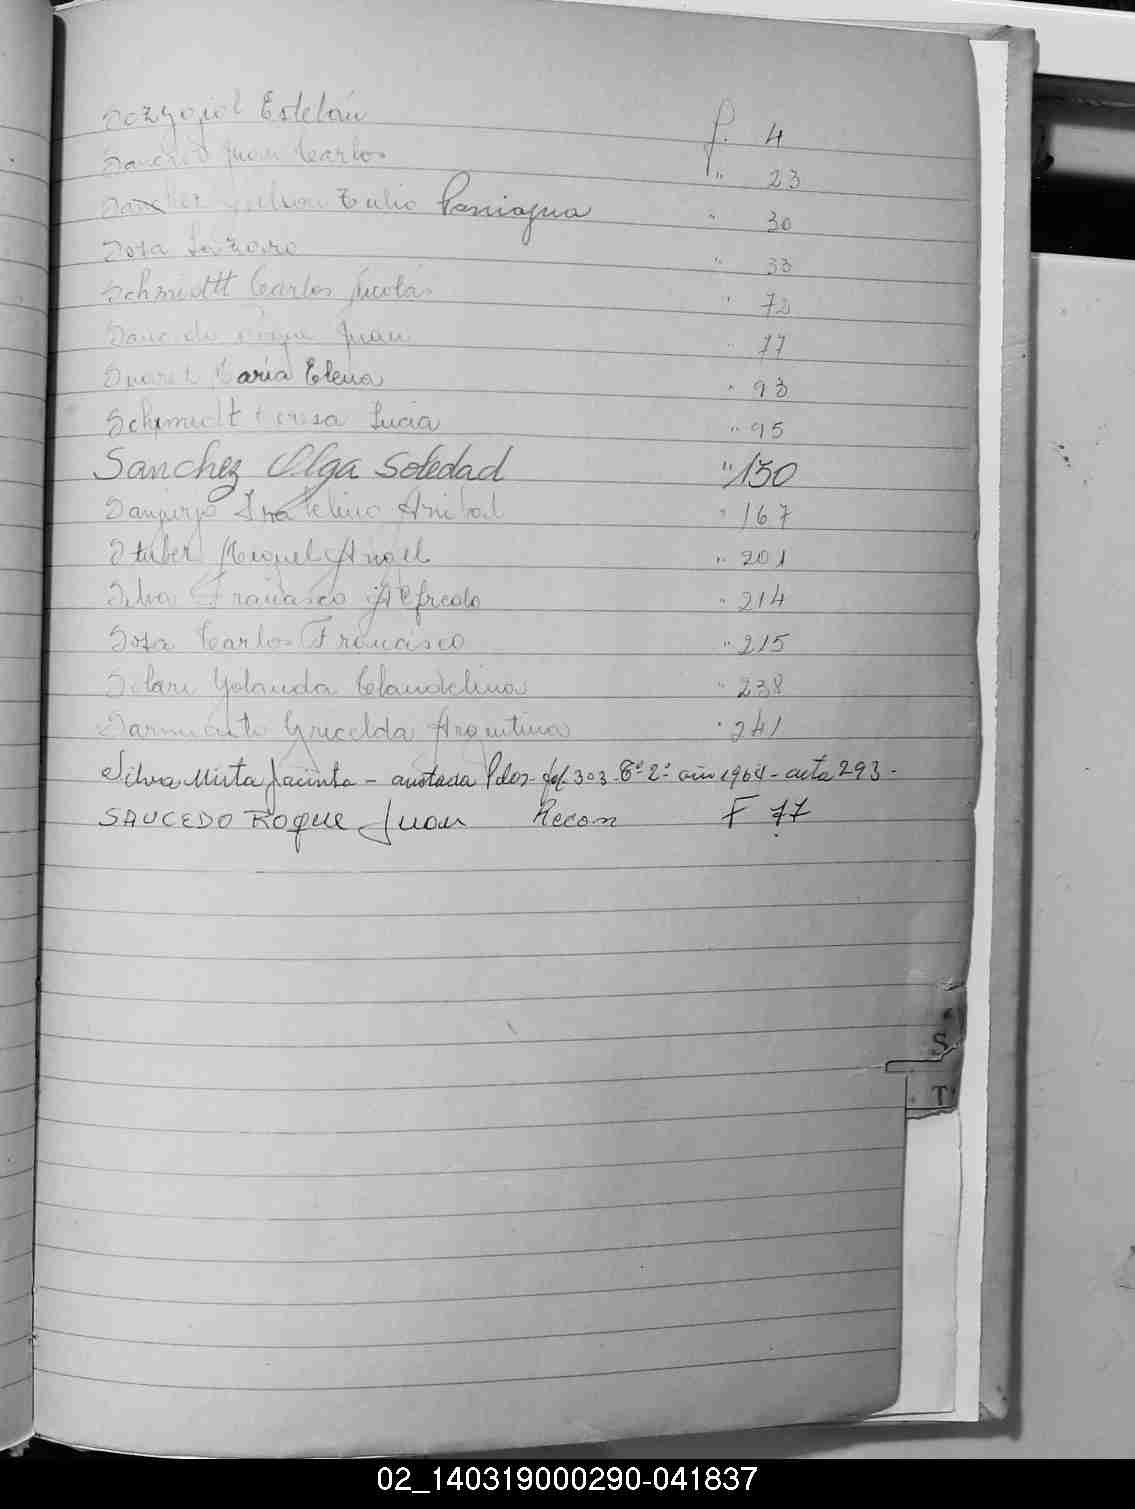 Estelán f. 4
Sanchez Juan Carlos " 23
Sanchez Nelson Tulio Paniagua " 30
Sosa Lázaro " 33
Schmidtt Carlos Nicolás " 72
Saucedo Roque Juan " 77
Suarez María Elena " 93
Schmidt Teresa Lucia " 95
Sanchez Olga Soledad " 130
Anibal " 167
Stuber Miguel Angel " 201
Silva Francisco Alfredo " 214
Sosa Carlos Francisco " 215
Solari Yolanda Claudelina " 238
Sarmiento Gricelda Argentina " 241
Silva Mirta Jacinta - anotada fol. 303 Tº 2º año 1964 - acta 293 -
SAUCEDO ROque Juan Recon F 77
S
T
02_140319000290-041837